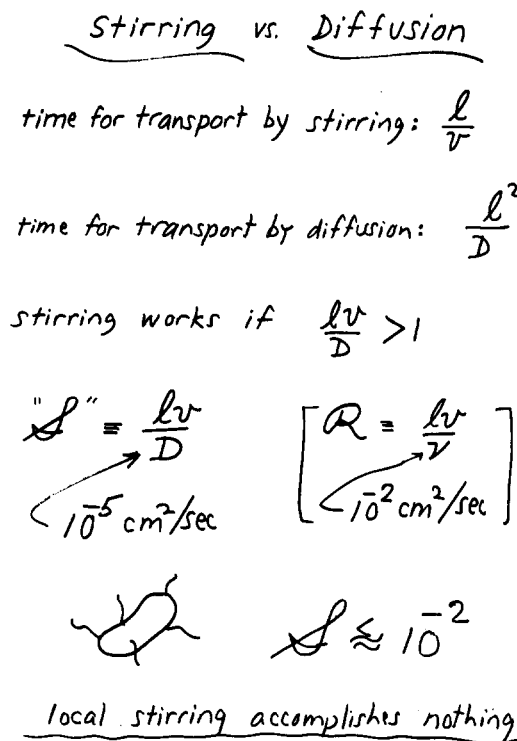 Stirring vs. Diffusion
time for transport by stirring: l/v
time for transport by diffusion: l²/D
stirring works if lv/D > 1
"S" ≡ lv/D [R ≡ lv/ν]
10⁻⁵ cm²/sec 10⁻² cm²/sec
S ⪅ 10⁻²
local stirring accomplishes nothing